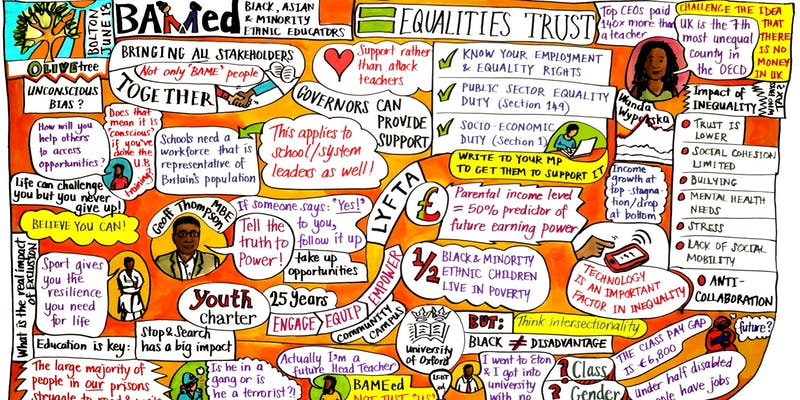 BAMEed
BLACK, ASIAN
& MINORITY
ETHNIC EDUCATORS
BOLTON
JUNE 18
OLIVE tree
BRINGING ALL STAKEHOLDERS
Not only 'BAME' people
TOGETHER
UNCONSCIOUS
BIAS?
Does that
mean it is
"conscious"
if you've
done the
U.B
training?
How will you
help others
to access
opportunities?
Life can challenge
you but you never
give up!
BELIEVE YOU CAN!
Schools need a
workforce that is
representative of
Britain's population
Support rather
than attack
teachers
GOVERNORS CAN
PROVIDE
SUPPORT
This applies to
school/system
leaders as well!
EQUALITIES TRUST
KNOW YOUR EMPLOYMENT
& EQUALITY RIGHTS
PUBLIC SECTOR EQUALITY
DUTY (Section 149)
SOCIO-ECONOMIC
DUTY (Section 1)
WRITE TO YOUR MP
TO GET THEM TO SUPPORT IT
Top CEOs paid
140x more than
a teacher
CHALLENGE THE IDEA
THAT
THERE
IS NO
MONEY
IN UK
UK is the 7th
most unequal
county in
the OECD
Wanda
Wyporska
Impact of
INEQUALITY
TRUST IS
LOWER
SOCIAL COHESION
LIMITED
BULLYING
MENTAL HEALTH
NEEDS
STRESS
LACK OF SOCIAL
MOBILITY
ANTI-
COLLABORATION
Income
growth at
top-stagna-
tion/drop
at bottom
LYFTA
£
Parental income level
= 50% predictor of
future earning power
1/2
BLACK & MINORITY
ETHNIC CHILDREN
LIVE IN POVERTY
TECHNOLOGY
IS AN IMPORTANT
FACTOR IN INEQUALITY
Geoff Thompson MBE
Tell the
truth to
Power!
If someone says: "Yes!"
to you,
follow it up
take up
opportunities
What is the real impact
of EXCLUSION
Sport gives
you the
resilience
you need
for life
Youth
charter
25 years
ENGAGE
EQUIP
EMPOWER
COMMUNITY
CAMPUS
Education is key:
Stop & Search
has a big impact
The large majority of
people in our prisons
struggle to read & write
Is he in a
gang or is
he a terrorist?!
Actually I'm a
future Head Teacher
BAMEed
NOT JUST "US"
University
of Oxford
LGBT
BUT:
Think intersectionality
BLACK ≠ DISADVANTAGE
I went to Eton
& I got into
university
with no
? Class
? Gender
THE CLASS PAY GAP
IS £6,800
future?
under half disabled
people have jobs